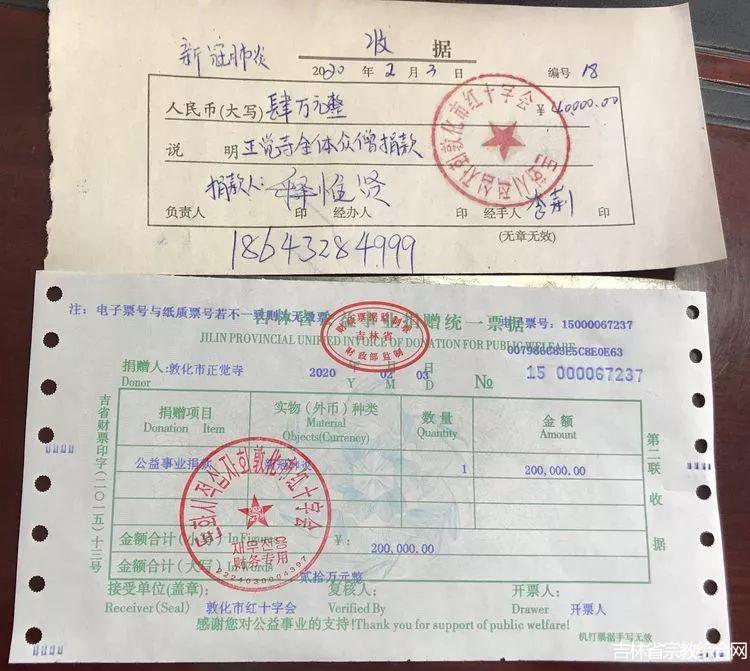 新冠肺炎
收 据
2020 年 2 月 3 日 编号 18
人民币(大写) 肆万元整 ¥ 40000.00
说 明 正觉寺全体众僧捐款
捐款人: 释惟贤
负责人 印 经办人 印 经手人 印
(无章无效)
18643284999
敦化市红十字会
注: 电子票号与纸质票号若不一致则为无效票
吉林省公益事业捐赠统一票据
票号: 15000067237
JILIN PROVINCIAL UNIFIED INVOICE OF DONATION FOR PUBLIC WELFARE
007986C83E5C8E0E63
吉林省
财政部监制
捐赠人: 敦化市正觉寺 2020 年 02 月 03 日 № 15 000067237
Donor Y M D
捐赠项目 实物(外币)种类 数量 金额
Donation Item Material Objects(Currency) Quantity Amount
公益事业捐款 1 200,000.00
金额合计(小写)In Figures ¥: 200,000.00
金额合计(大写)In Words 贰拾万元整
接受单位(盖章): 复核人: 开票人:
Receiver(Seal) 敦化市红十字会 Verified By Drawer 开票人
感谢您对公益事业的支持!Thank you for support of public welfare!
机打票据手写无效
吉省财票印字(二〇一五)十三号
第二联 收据
敦化市红十字会
재무전용
财务专用
2224030004397
吉林省宗教